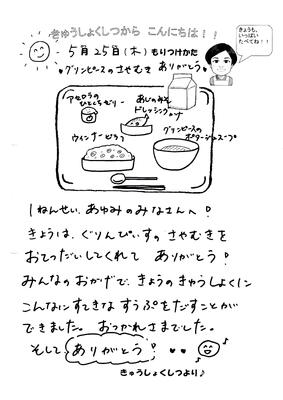 きゅうしょくしつから こんにちは！！
きょうも、
いっぱい
たべてね！！
5月25日(木)もりつけかた
♥グリンピースのさやむき ありがとう♥
アセロラの
ひとくちゼリー
あじのみそ
ドレッシングソース
グリンピースの
ポタージュスープ
ウィンナーピラフ
1ねんせい、あゆみのみなさんへ♪
きょうは、ぐりんぴいすの さやむきを
おてつだいしてくれて ありがとう！
みんなのおかげで、きょうのきゅうしょくに
こんなにすてきな すうぷをだすことが
できました。おつかれさまでした。
そして ありがとう！ ♥♥
きゅうしょくしつより♪